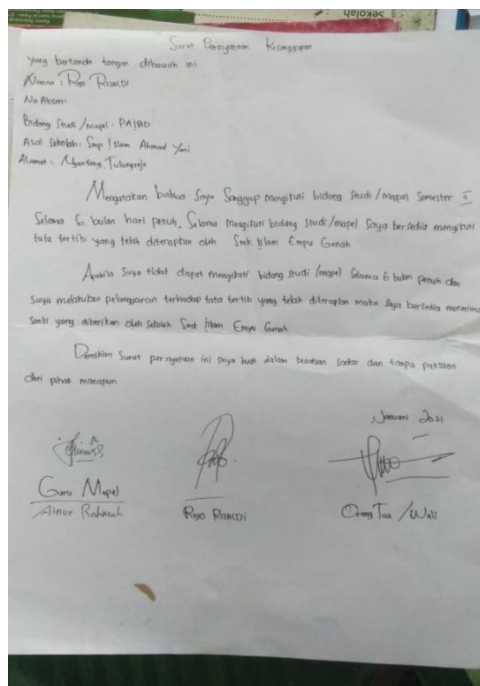 Surat Pernyataan Kesanggupan
Yang bertanda tangan dibawah ini
Nama : Rigo Romadi
No Absen:
Bidang Studi /mapel : PAIBD
Asal Sekolah : Smp Islam Ahmad Yani
Alamat : Tulungrejo
Mengatakan bahwa Saya Sanggup mengikuti bidang Studi /Mapel Semester II
Selama 6 bulan hari penuh. Selama mengikuti bidang Studi/mapel Saya bersedia mengikuti
tata tertib yang telah diterapkan oleh Smk Islam Empu Genah
Apabila Saya tidak dapat mengikuti bidang Studi /mapel Selama 6 bulan penuh dan
Saya melakukan pelanggaran terhadap tata tertib yang telah diterapkan maka Saya bersedia menerima
Sanksi yang diberikan oleh sekolah Smk Islam Empu Genah
Demikian Surat pernyataan ini saya buat dalam keadaan sadar dan tanpa paksaan
dari pihak manapun
, Januari 2021
Guru Mapel
Ainur Rahmah
Rigo Romadi
Orang Tua /Wali